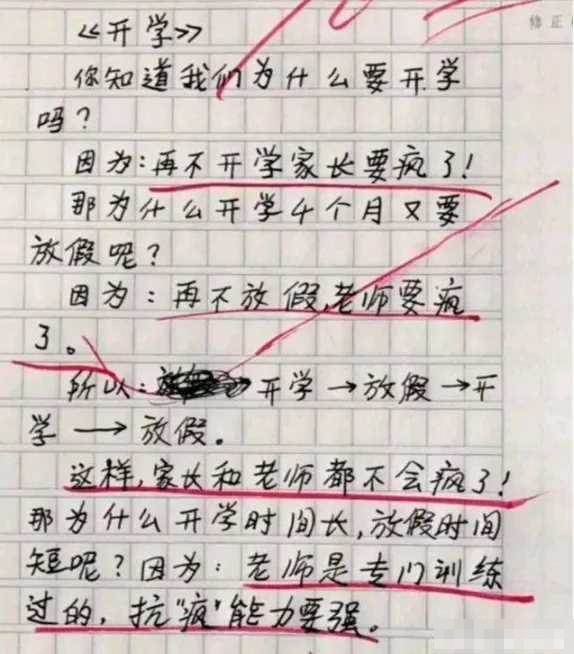 《开学》
你知道我们为什么要开学
吗？
因为：再不开学家长要疯了！
那为什么开学4个月又要
放假呢？
因为：再不放假，老师要疯
了。
所以：开学→放假→开
学→放假。
这样，家长和老师都不会疯了！
那为什么开学时间长，放假时间
短呢？因为：老师是专门训练
过的，抗“疯”能力要强。
修正